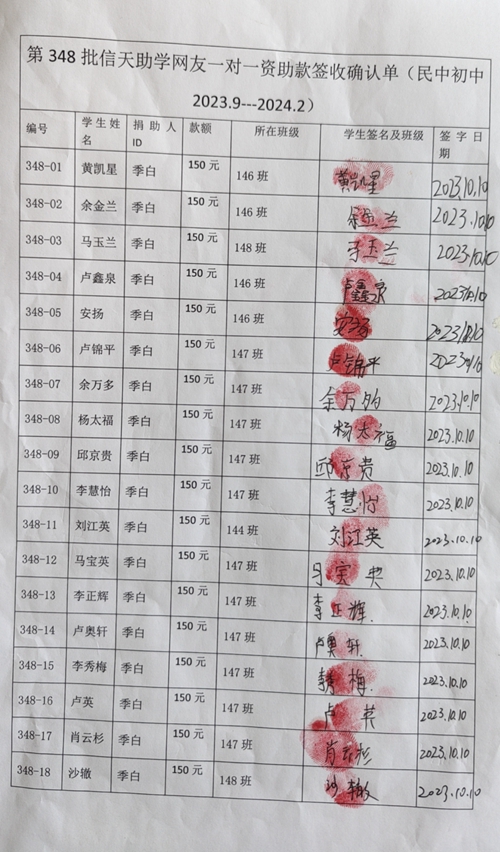 第 348 批信天助学网友一对一资助款签收确认单（民中初中
2023.9---2024.2）
编号 学生姓名 捐助人ID 款额 所在班级 学生签名及班级 签字日期
348-01 黄凯星 季白 150 元 146 班 黄凯星 2023.10.10
348-02 余金兰 季白 150 元 146 班 余金兰 2023.10.10
348-03 马玉兰 季白 150 元 148 班 马玉兰 2023.10.10
348-04 卢鑫泉 季白 150 元 146 班 卢鑫泉 2023.10.10
348-05 安扬 季白 150 元 146 班 安扬 2023.10.10
348-06 卢锦平 季白 150 元 147 班 卢锦平
348-07 余万多 季白 150 元 147 班 余万多 2023.10.10
348-08 杨太福 季白 150 元 147 班 杨太福 2023.10.10
348-09 邱京贵 季白 150 元 147 班 邱京贵 2023.10.10
348-10 李慧怡 季白 150 元 147 班 李慧怡 2023.10.10
348-11 刘江英 季白 150 元 144 班 刘江英 2023.10.10
348-12 马宝英 季白 150 元 147 班 马宝英 2023.10.10
348-13 李正辉 季白 150 元 147 班 李正辉 2023.10.10
348-14 卢奥轩 季白 150 元 147 班 卢奥轩 2023.10.10
348-15 李秀梅 季白 150 元 147 班 李秀梅 2023.10.10
348-16 卢英 季白 150 元 147 班 卢英 2023.10.10
348-17 肖云杉 季白 150 元 147 班 肖云杉 2023.10.10
348-18 沙辙 季白 150 元 148 班 沙辙 2023.10.10